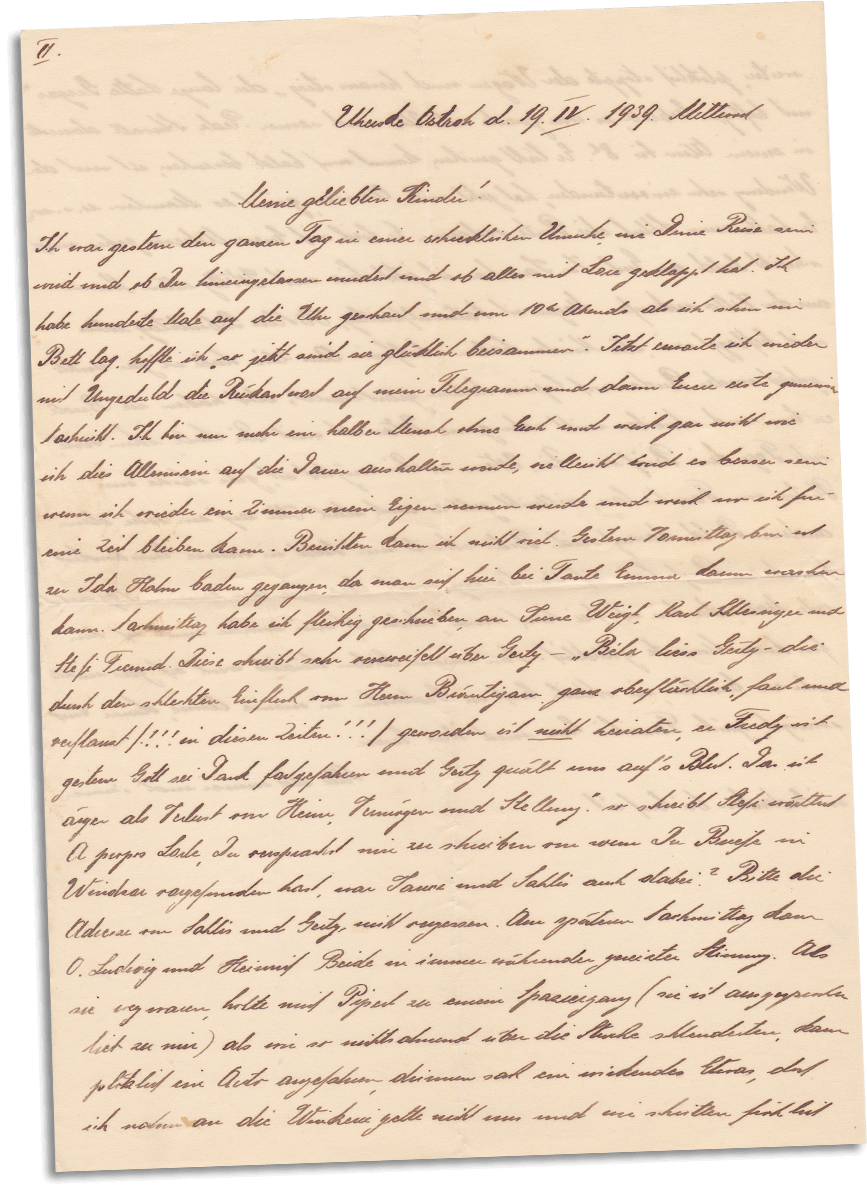 II.
Uherský Ostroh d. 19. IV. 1939. Mittwoch
Meine geliebten Kinder!
Ich war gestern den ganzen Tag in einer schrecklichen Unruhe, wie Deine Reise sein
wird und ob Du hineingelassen wurdest und ob alles mit Lore geklappt hat. Ich
habe hunderte Male auf die Uhr geschaut und um 10h Abends als ich schon im
Bett lag, hoffte ich „so jetzt sind sie glücklich beisammen". Jetzt erwarte ich wieder
mit Ungeduld die Rückantwort auf mein Telegramm und dann Euere erste gemeins.
Nachricht. Ich bin nur mehr ein halber Mensch ohne Euch und weiß gar nicht wie
ich dies Alleinsein auf die Dauer aushalten werde, vielleicht wird es besser sein
wenn ich wieder ein Zimmer mein Eigen nennen werde und weiß wo ich für
eine Zeit bleiben kann. Berichten kann ich nicht viel. Gestern Vormittag bin ich
zu Ida Hahn baden gegangen, da man sich hier bei Tante Emma kaum waschen
kann. Nachmittag habe ich fleißig geschrieben, an Irene Weigl, Karl Schlesinger und
Stefi Freund. Diese schreibt sehr verzweifelt über Gerty – „Bitte liess Gerty – die
durch den schlechten Einfluß von Herrn Bräutigam ganz oberflächlich, faul und
verflaust /!!! in diesen Zeiten!!!/ geworden ist nicht heiraten, er Fredy ist
gestern Gott sei Dank fortgefahren und Gerty quält uns auf's Blut. Das ist
ärger als Verlust von Heim, Vermögen und Stellung." so schreibt Stefi wörtlich
A propos Lorle, Du versprachst mir zu schreiben von wem Du Briefe in
Windsor vorgefunden hast, war und auch dabei? Bitte die
Adresse von und Gerty, nicht vergessen. Am späteren Nachmittag kam
O. Ludwig und Heinrich Beide in immerwährender gereizter Stimmung. Als
sie weg waren, holte mich Piperl zu einem Spaziergang (sie ist ausgesprochen
lieb zu mir) als wir so nichtsahnend über die Straße schlenderten, kam
plötzlich ein Auto angefahren, drinnen saß ein winkendes Etwas, doch
ich nahm an die Winkerei gelte nicht uns und wir schritten fröhlich